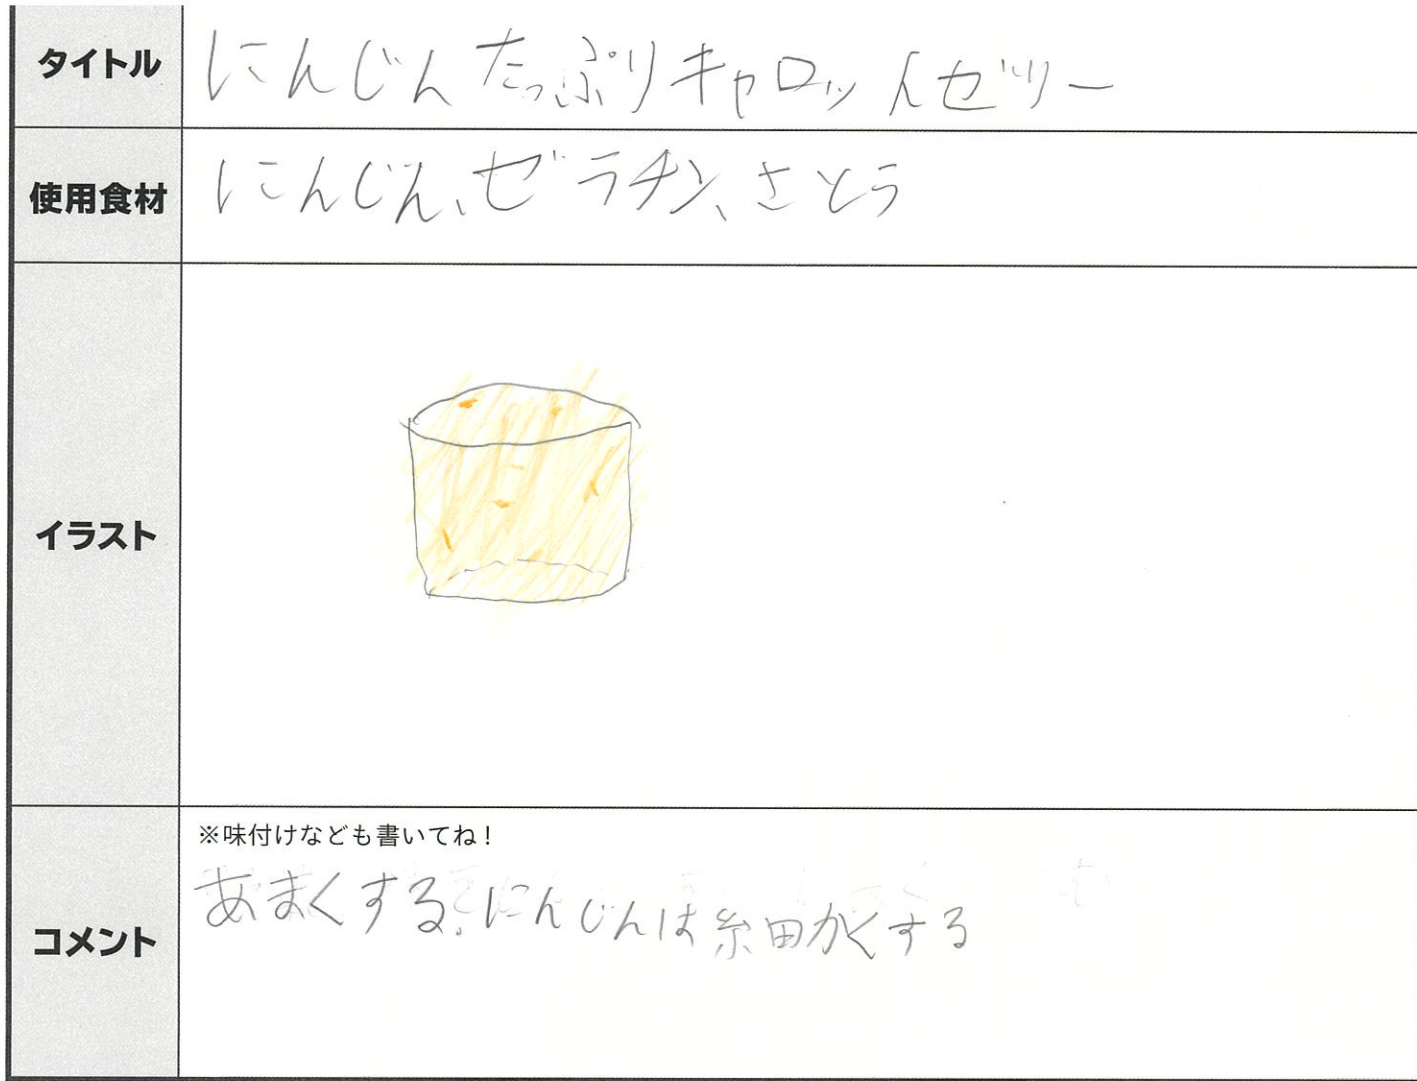 タイトル
にんじんたっぷりキャロットゼリー
使用食材
にんじん、ゼラチン、さとう
イラスト
コメント
※味付けなども書いてね!
あまくする。にんじんは細かくする